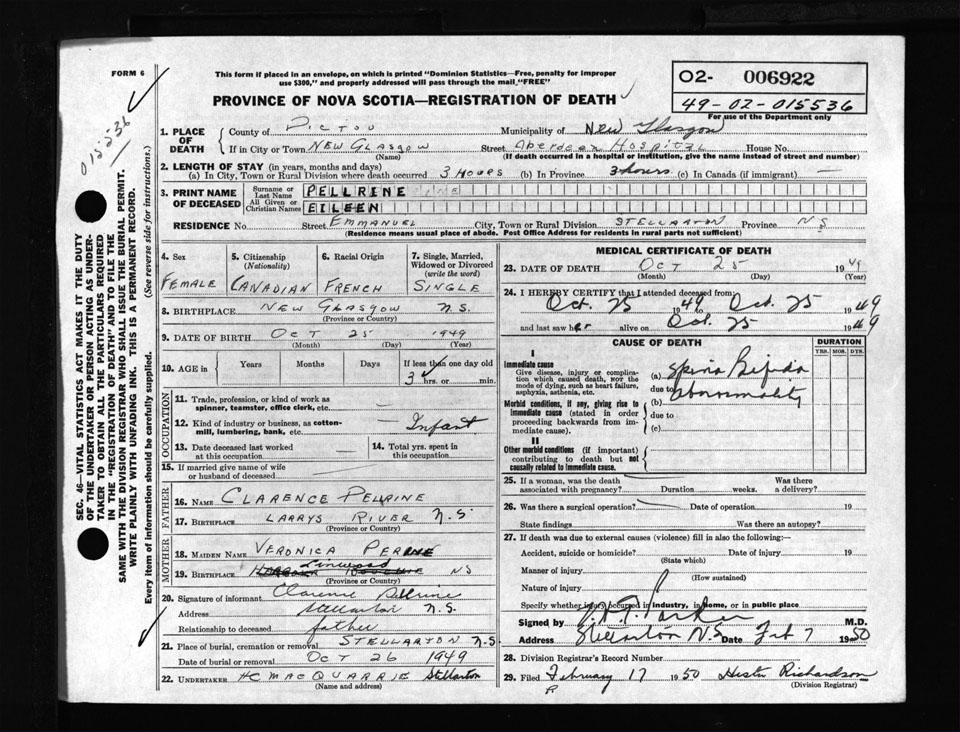 FORM 6
This form if placed in an envelope, on which is printed "Dominion Statistics—Free, penalty for improper
use $300," and properly addressed will pass through the mail "FREE"
PROVINCE OF NOVA SCOTIA—REGISTRATION OF DEATH
02- 006922
49-02-015536
For use of the Department only
SEC. 46—VITAL STATISTICS ACT MAKES IT THE DUTY
OF THE UNDERTAKER OR PERSON ACTING AS UNDER-
TAKER TO OBTAIN ALL THE PARTICULARS REQUIRED
IN THE "REGISTRATION OF DEATH" AND TO FILE THE
SAME WITH THE DIVISION REGISTRAR WHO SHALL ISSUE THE BURIAL PERMIT.
WRITE PLAINLY WITH UNFADING INK. THIS IS A PERMANENT RECORD.
Every item of information should be carefully supplied. (See reverse side for instructions.)
1. PLACE OF DEATH County of PICTOU Municipality of New Glasgow
If in City or Town NEW GLASGOW Street Aberdeen Hospital House No.
(Name) (If death occurred in a hospital or institution, give the name instead of street and number)
2. LENGTH OF STAY (in years, months and days)
(a) In City, Town or Rural Division where death occurred 3 HOURS (b) In Province 3 hours (c) In Canada (if immigrant) —
3. PRINT NAME OF DECEASED
Surname or Last Name PELLRINE
All Given or Christian Names EILEEN
RESIDENCE No. Street EMMANUEL City, Town or Rural Division STELLARTON Province NS
(Residence means usual place of abode. Post Office Address for residents in rural parts not sufficient)
4. Sex 5. Citizenship (Nationality) 6. Racial Origin 7. Single, Married, Widowed or Divorced (write the word)
FEMALE CANADIAN FRENCH SINGLE
8. BIRTHPLACE NEW GLASGOW N.S.
(Province or Country)
9. DATE OF BIRTH OCT 25 1949
(Month) (Day) (Year)
10. AGE in Years Months Days If less than one day old
3 hrs. or min.
OCCUPATION
11. Trade, profession, or kind of work as
spinner, teamster, office clerk, etc.
12. Kind of industry or business, as cotton-
mill, lumbering, bank, etc. — Infant
13. Date deceased last worked
at this occupation —
14. Total yrs. spent in
this occupation
15. If married give name of wife
or husband of deceased
FATHER
16. NAME CLARENCE PELLRINE
17. BIRTHPLACE LARRYS RIVER N.S.
(Province or Country)
MOTHER
18. MAIDEN NAME VERONICA PERRINE
19. BIRTHPLACE Linwood NS
(Province or Country)
20. Signature of informant Clarence Pellrine
Address Stellarton N.S.
Relationship to deceased father
21. Place of burial, cremation or removal STELLARTON N.S.
Date of burial or removal OCT 26 1949
22. UNDERTAKER HC MACQUARRIE Stellarton
(Name and address)
MEDICAL CERTIFICATE OF DEATH
23. DATE OF DEATH OCT 25 1949
(Month) (Day) (Year)
24. I HEREBY CERTIFY that I attended deceased from
Oct. 25 1949 to Oct. 25 1949
and last saw her alive on Oct. 25 1949
CAUSE OF DEATH DURATION
YRS. MOS. DYS.
I
Immediate cause
Give disease, injury or complica-
tion which caused death, NOT the
mode of dying, such as heart failure,
asphyxia, asthenia, etc.
(a) Spina Bifida
due to abnormality
Morbid conditions, if any, giving rise to
immediate cause (stated in order
proceeding backwards from im-
mediate cause).
(b)
due to
(c)
II
Other morbid conditions (if important)
contributing to death but not
causally related to immediate cause.
25. If a woman, was the death
associated with pregnancy? Duration weeks. Was there
a delivery?
26. Was there a surgical operation? Date of operation 19
State findings Was there an autopsy?
27. If death was due to external causes (violence) fill in also the following:—
Accident, suicide or homicide? Date of injury 19
(State which)
Manner of injury
(How sustained)
Nature of injury
Specify whether injury occurred in industry, in home, or in public place
Signed by Parker M.D.
Address Stellarton N.S. Date Feb 7 1950
28. Division Registrar's Record Number
29. Filed February 17 1950 Hester Richardson
(Division Registrar)